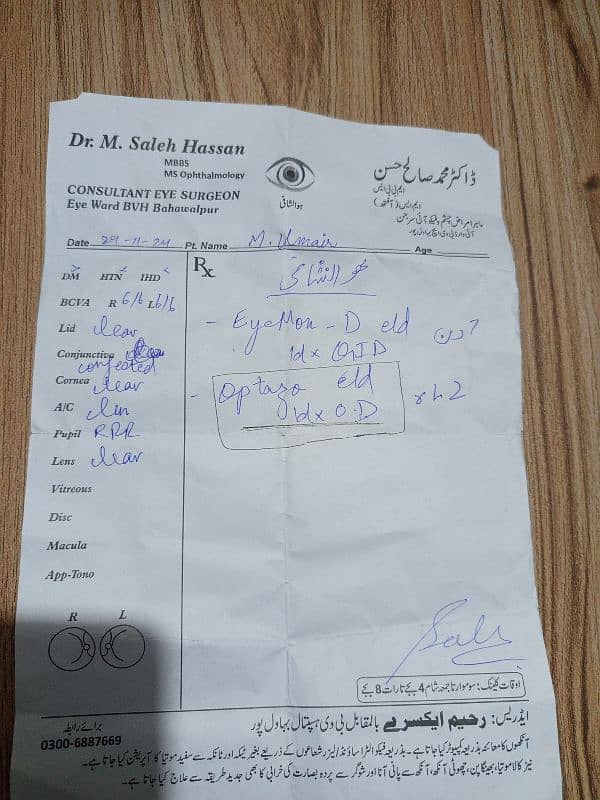 Dr. M. Saleh Hassan
MBBS
MS Ophthalmology
CONSULTANT EYE SURGEON
Eye Ward BVH Bahawalpur
ھوالشافی
ڈاکٹر محمد صالح حسن
ایم بی بی ایس
ایم ایس (آفتھ)
ماہر امراض چشم و فیکو آئی سرجن
Date 29-11-24 Pt. Name M. Umair Age
DM HTN IHD
BCVA R 6/6 L 6/6
Lid Clear
Conjunctiva
congested
Cornea Clear
A/C
Pupil RRR
Lens Clear
Vitreous
Disc
Macula
App-Tono
R L
Rx
ھوالشافی
- EyeMon-D e/d
1d x QID
7 دن
- Optazo e/d
1d x O.D
اوقات کلینک: سوموار تا جمعہ شام 4 بجے تا رات 8 بجے
ایڈریس: رحیم ایکسرے بالمقابل بی وی ہسپتال بہاول پور
برائے رابطہ
0300-6887669
آنکھوں کا معائنہ بذریعہ کمپیوٹر کیا جاتا ہے۔ بذریعہ فیکو الٹرا ساؤنڈ/لیزر شعاعوں کے ذریعے بغیر ٹیکہ اور ٹانکہ سے سفید موتیا کا آپریشن کیا جاتا ہے۔
نیز کالا موتیا، بھینگا پن، چھوٹی آنکھ، آنکھ سے پانی آنا اور شوگر سے پردہ بصارت کی خرابی کا بھی جدید طریقہ سے علاج کیا جاتا ہے۔